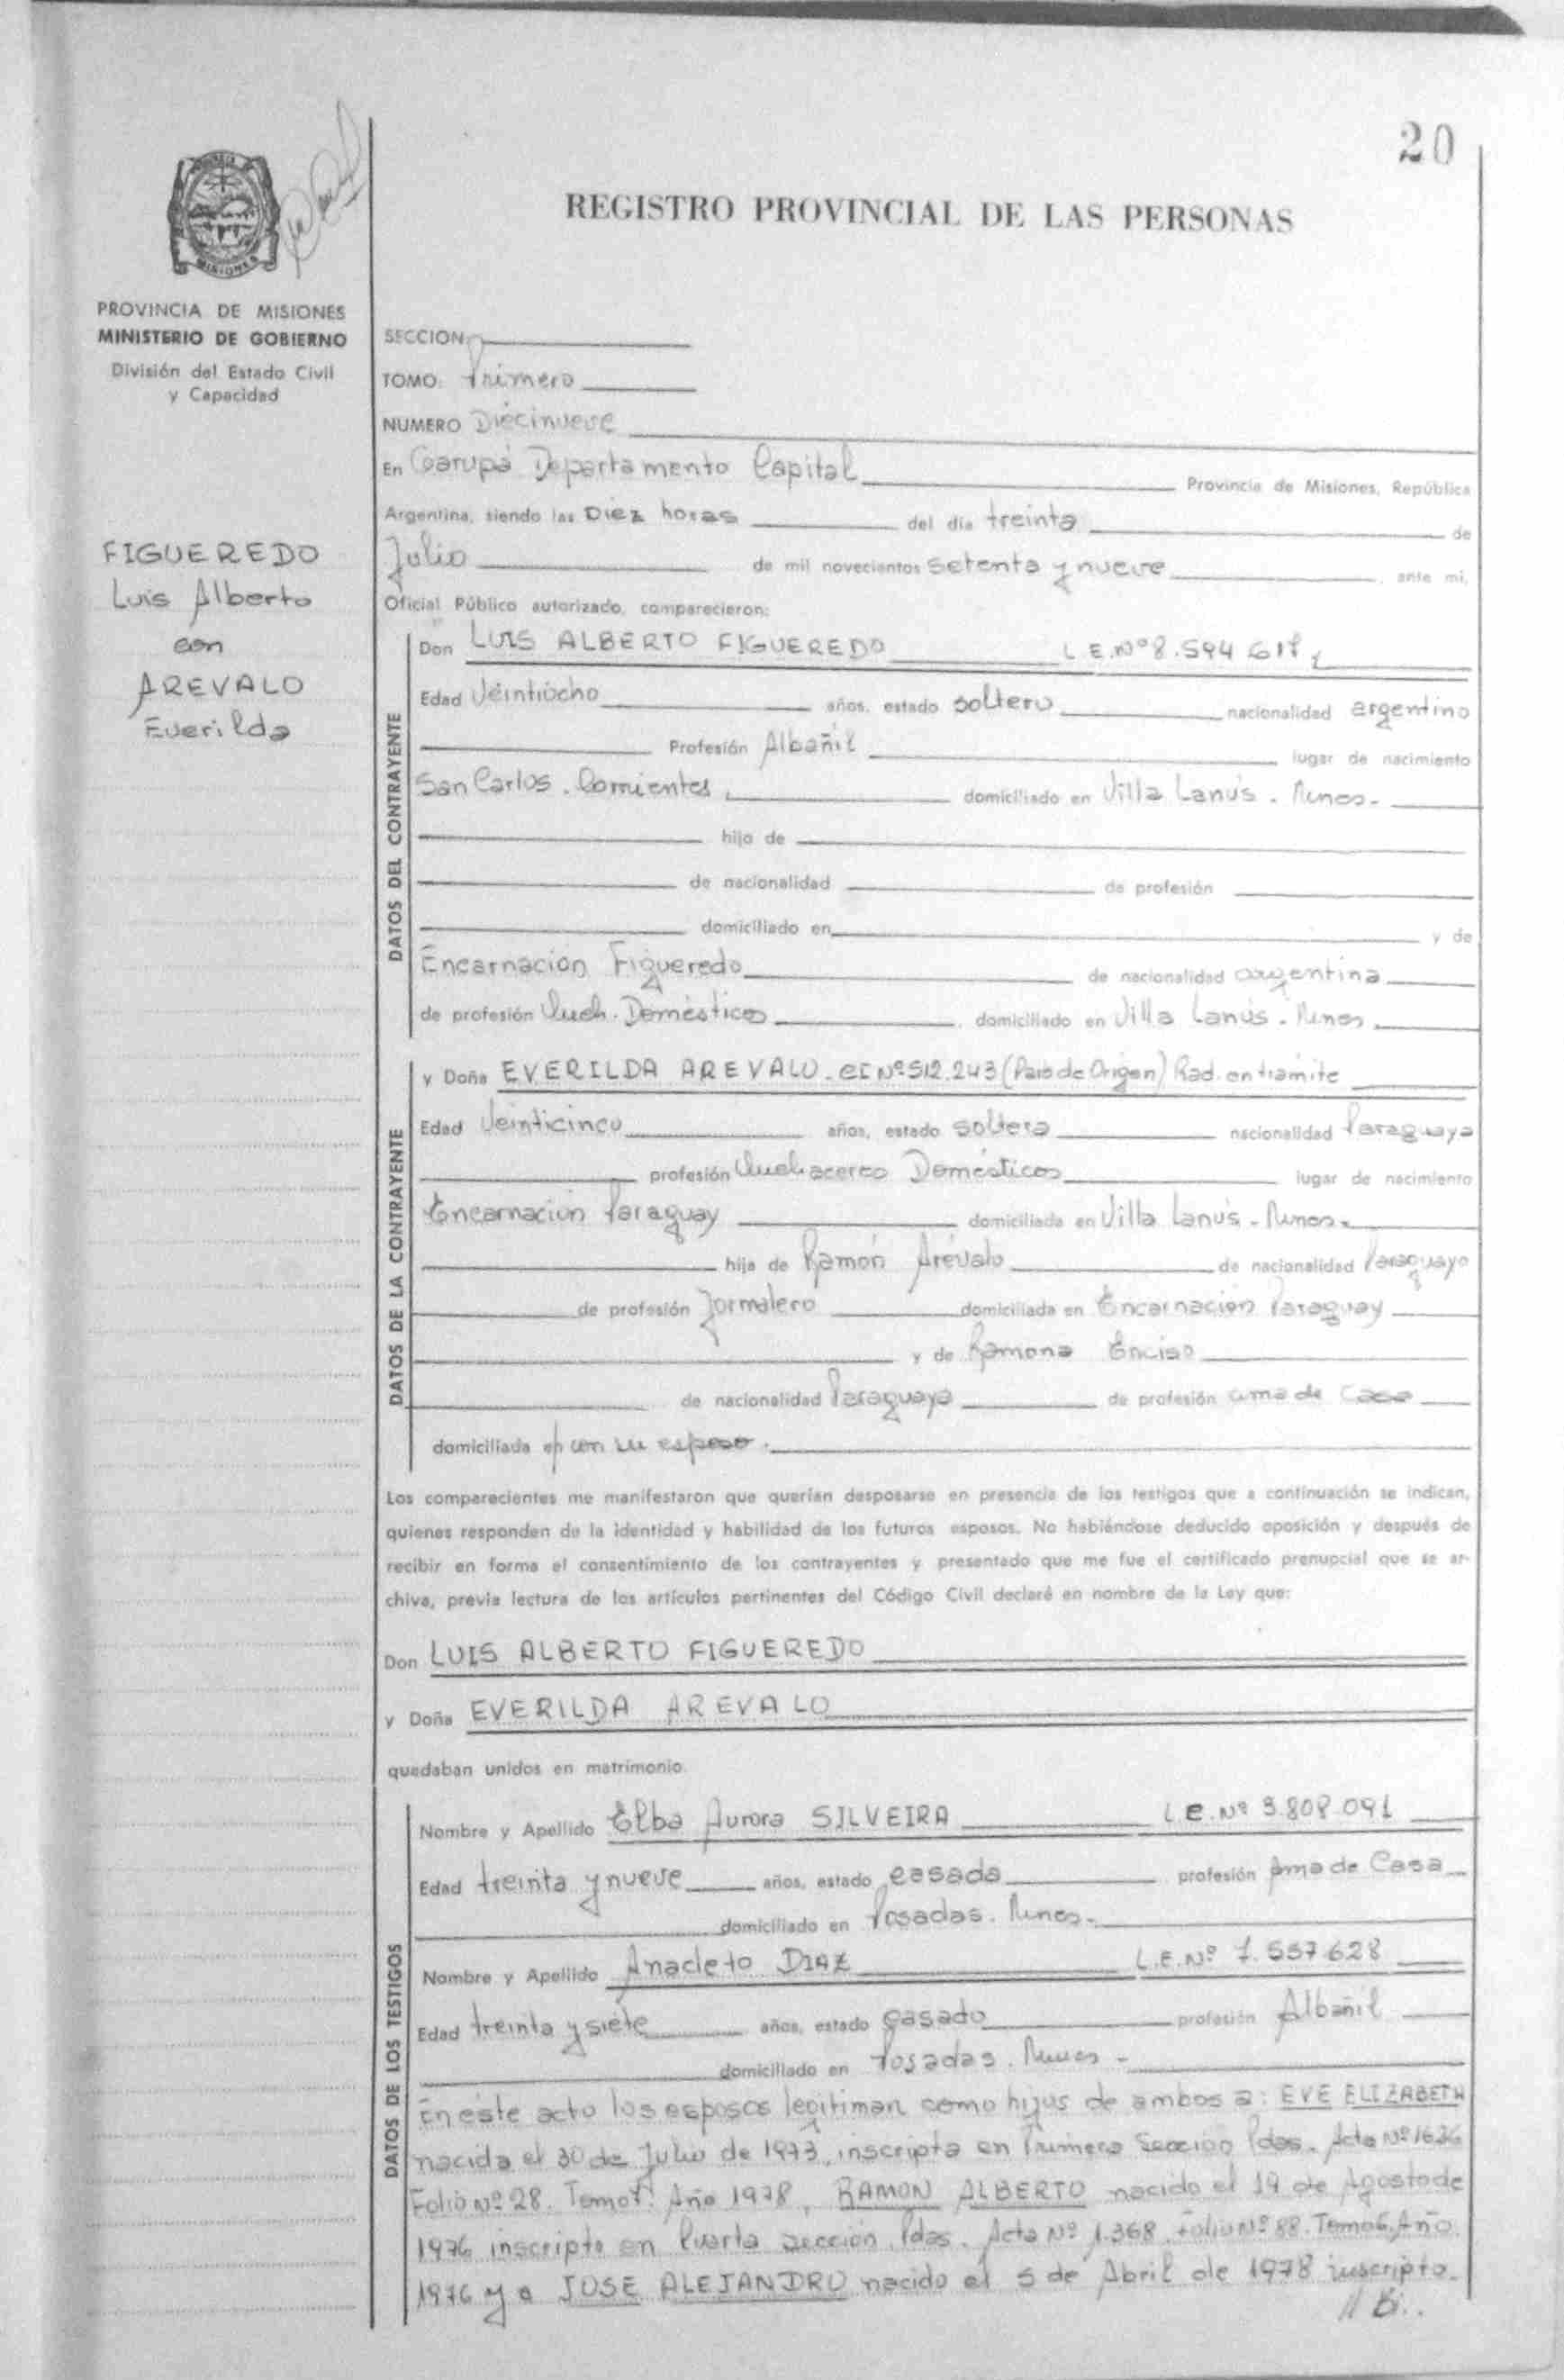 20
REGISTRO PROVINCIAL DE LAS PERSONAS
MISIONES
PROVINCIA DE MISIONES
MINISTERIO DE GOBIERNO
División del Estado Civil
y Capacidad
FIGUEREDO
Luis Alberto
con
AREVALO
Everilda
SECCION:
TOMO: Primero
NUMERO Diecinueve
En Garupá Departamento Capital Provincia de Misiones, República
Argentina, siendo las Diez horas del día treinta de
Julio de mil novecientos setenta y nueve, ante mí,
Oficial Público autorizado, comparecieron:
DATOS DEL CONTRAYENTE
Don LUIS ALBERTO FIGUEREDO L.E.Nº 8.594
Edad Veintiocho años, estado soltero nacionalidad argentino
Profesión Albañil lugar de nacimiento
San Carlos. Corrientes, domiciliado en Villa Lanús. Mnes.-
hijo de
de nacionalidad de profesión
domiciliado en y de
Encarnación Figueredo de nacionalidad argentina
de profesión Queh. Domésticos, domiciliado en Villa Lanús. Mnes
DATOS DE LA CONTRAYENTE
y Doña EVERILDA AREVALO. CI Nº 512.243 (Pais de Origen) Rad. en trámite
Edad Veinticinco años, estado soltera nacionalidad Paraguaya
profesión Quehaceres Domésticos lugar de nacimiento
Encarnación Paraguay domiciliada en Villa Lanús. Mnes.
hija de Ramón Arévalo de nacionalidad Paraguayo
de profesión Jornalero domiciliada en Encarnación Paraguay
y de Ramona Enciso
de nacionalidad Paraguaya de profesión ama de Casa
domiciliada en con su esposo.
Los comparecientes me manifestaron que querían desposarse en presencia de los testigos que a continuación se indican,
quienes responden de la identidad y habilidad de los futuros esposos. No habiéndose deducido oposición y después de
recibir en forma el consentimiento de los contrayentes y presentado que me fue el certificado prenupcial que se ar-
chiva, previa lectura de los artículos pertinentes del Código Civil declaré en nombre de la Ley que:
Don LUIS ALBERTO FIGUEREDO
y Doña EVERILDA AREVALO
quedaban unidos en matrimonio.
DATOS DE LOS TESTIGOS
Nombre y Apellido Elba Aurora SILVEIRA L.E.Nº 3.808.091
Edad treinta y nueve años, estado casada profesión Ama de Casa
domiciliado en Posadas. Mnes.
Nombre y Apellido Anacleto DIAZ L.E.Nº 7.557.628
Edad treinta y siete años, estado casado profesión Albañil
domiciliado en Posadas. Mnes -
En este acto los esposos legitiman como hijos de ambos a: EVE ELIZABETH
nacida el 30 de Julio de 1973, inscripta en Primera Sección Pdas. Acta Nº 1636
Folio Nº 28. Año 1978, RAMON ALBERTO nacido el 19 de Agosto de
1976 inscripto en Cuarta sección Pdas. Acta Nº 1.368. Folio Nº 88. Tomo 6. Año
1976 y a JOSE ALEJANDRO nacido el 5 de Abril de 1978 inscripto.